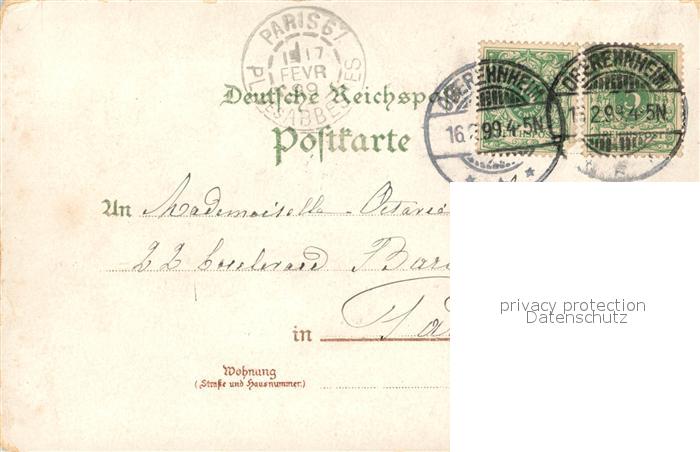 PARIS 67
17
FEVR
99
PL. DES ABBESSES
Deutsche Reichspo
Postkarte
OBEREHNHEIM
16.2.99.4-5N.
OBEREHNHEIM
2.99.4-5N.
REICHSPOST
An Mademoiselle Octavie
22 boulevard Bar
in Pa
Wohnung
(Straße und Hausnummer.)
privacy protection
Datenschutz